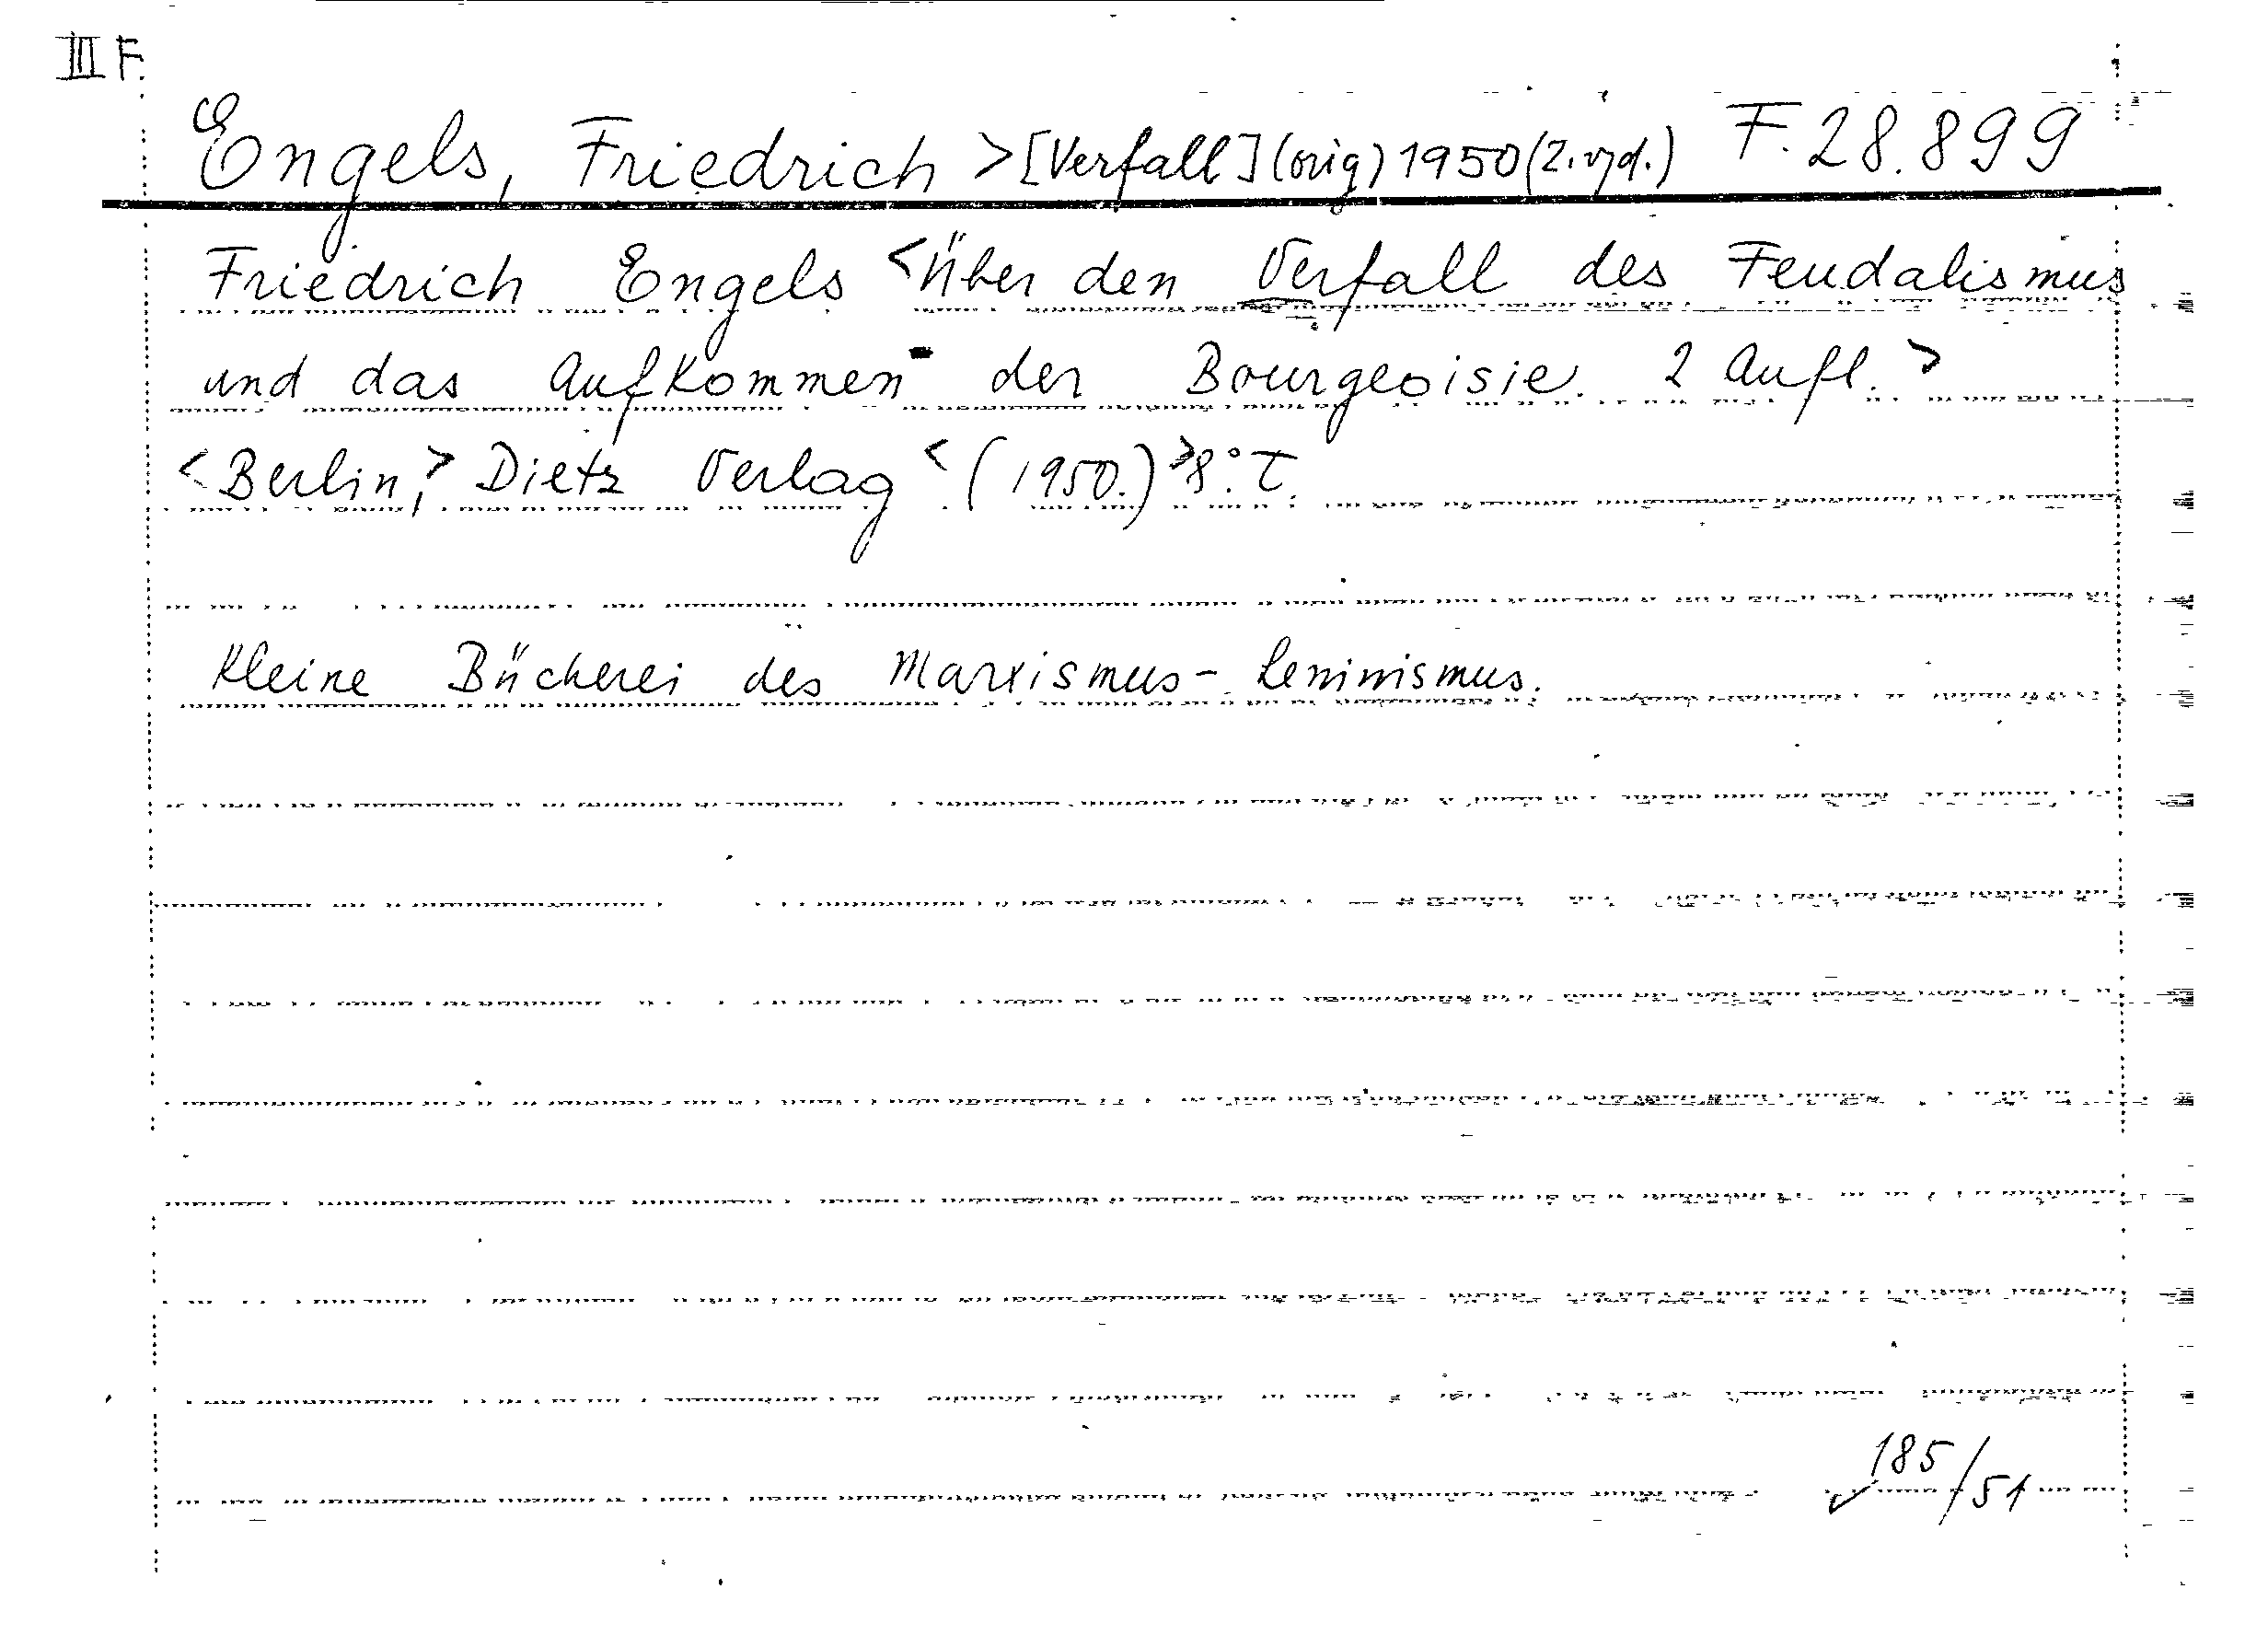 III F.
Engels, Friedrich >[Verfall](orig) 1950 (2. vyd.) F. 28.899
Friedrich Engels <Über den Verfall des Feudalismus
und das Aufkommen der Bourgeoisie. 2 Aufl.>
<Berlin,> Dietz Verlag <(1950.)> 8°. T.
Kleine Bücherei des Marxismus-Leninismus.
185/51